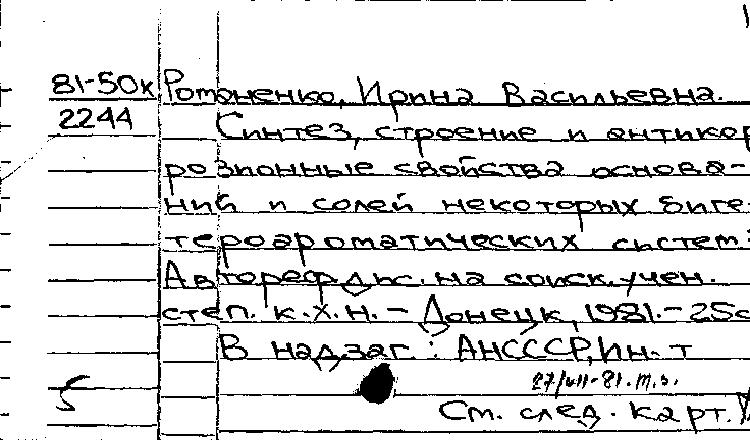 81-50к Романенко, Ирина Васильевна.
2244 Синтез, строение и антикор
розионные свойства основа-
ний и солей некоторых биге-
тероароматических систем:
Автореф. дис. на соиск. учен.
степ. к.х.н. - Донецк, 1981. - 25с
В надзаг.: АНСССР, Ин-т
27/VII-81.т.з.
5 См. след. карт.